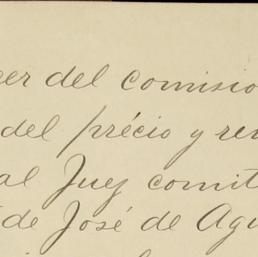 del comisio
del précio y re
al Juez comit
de José de Agu